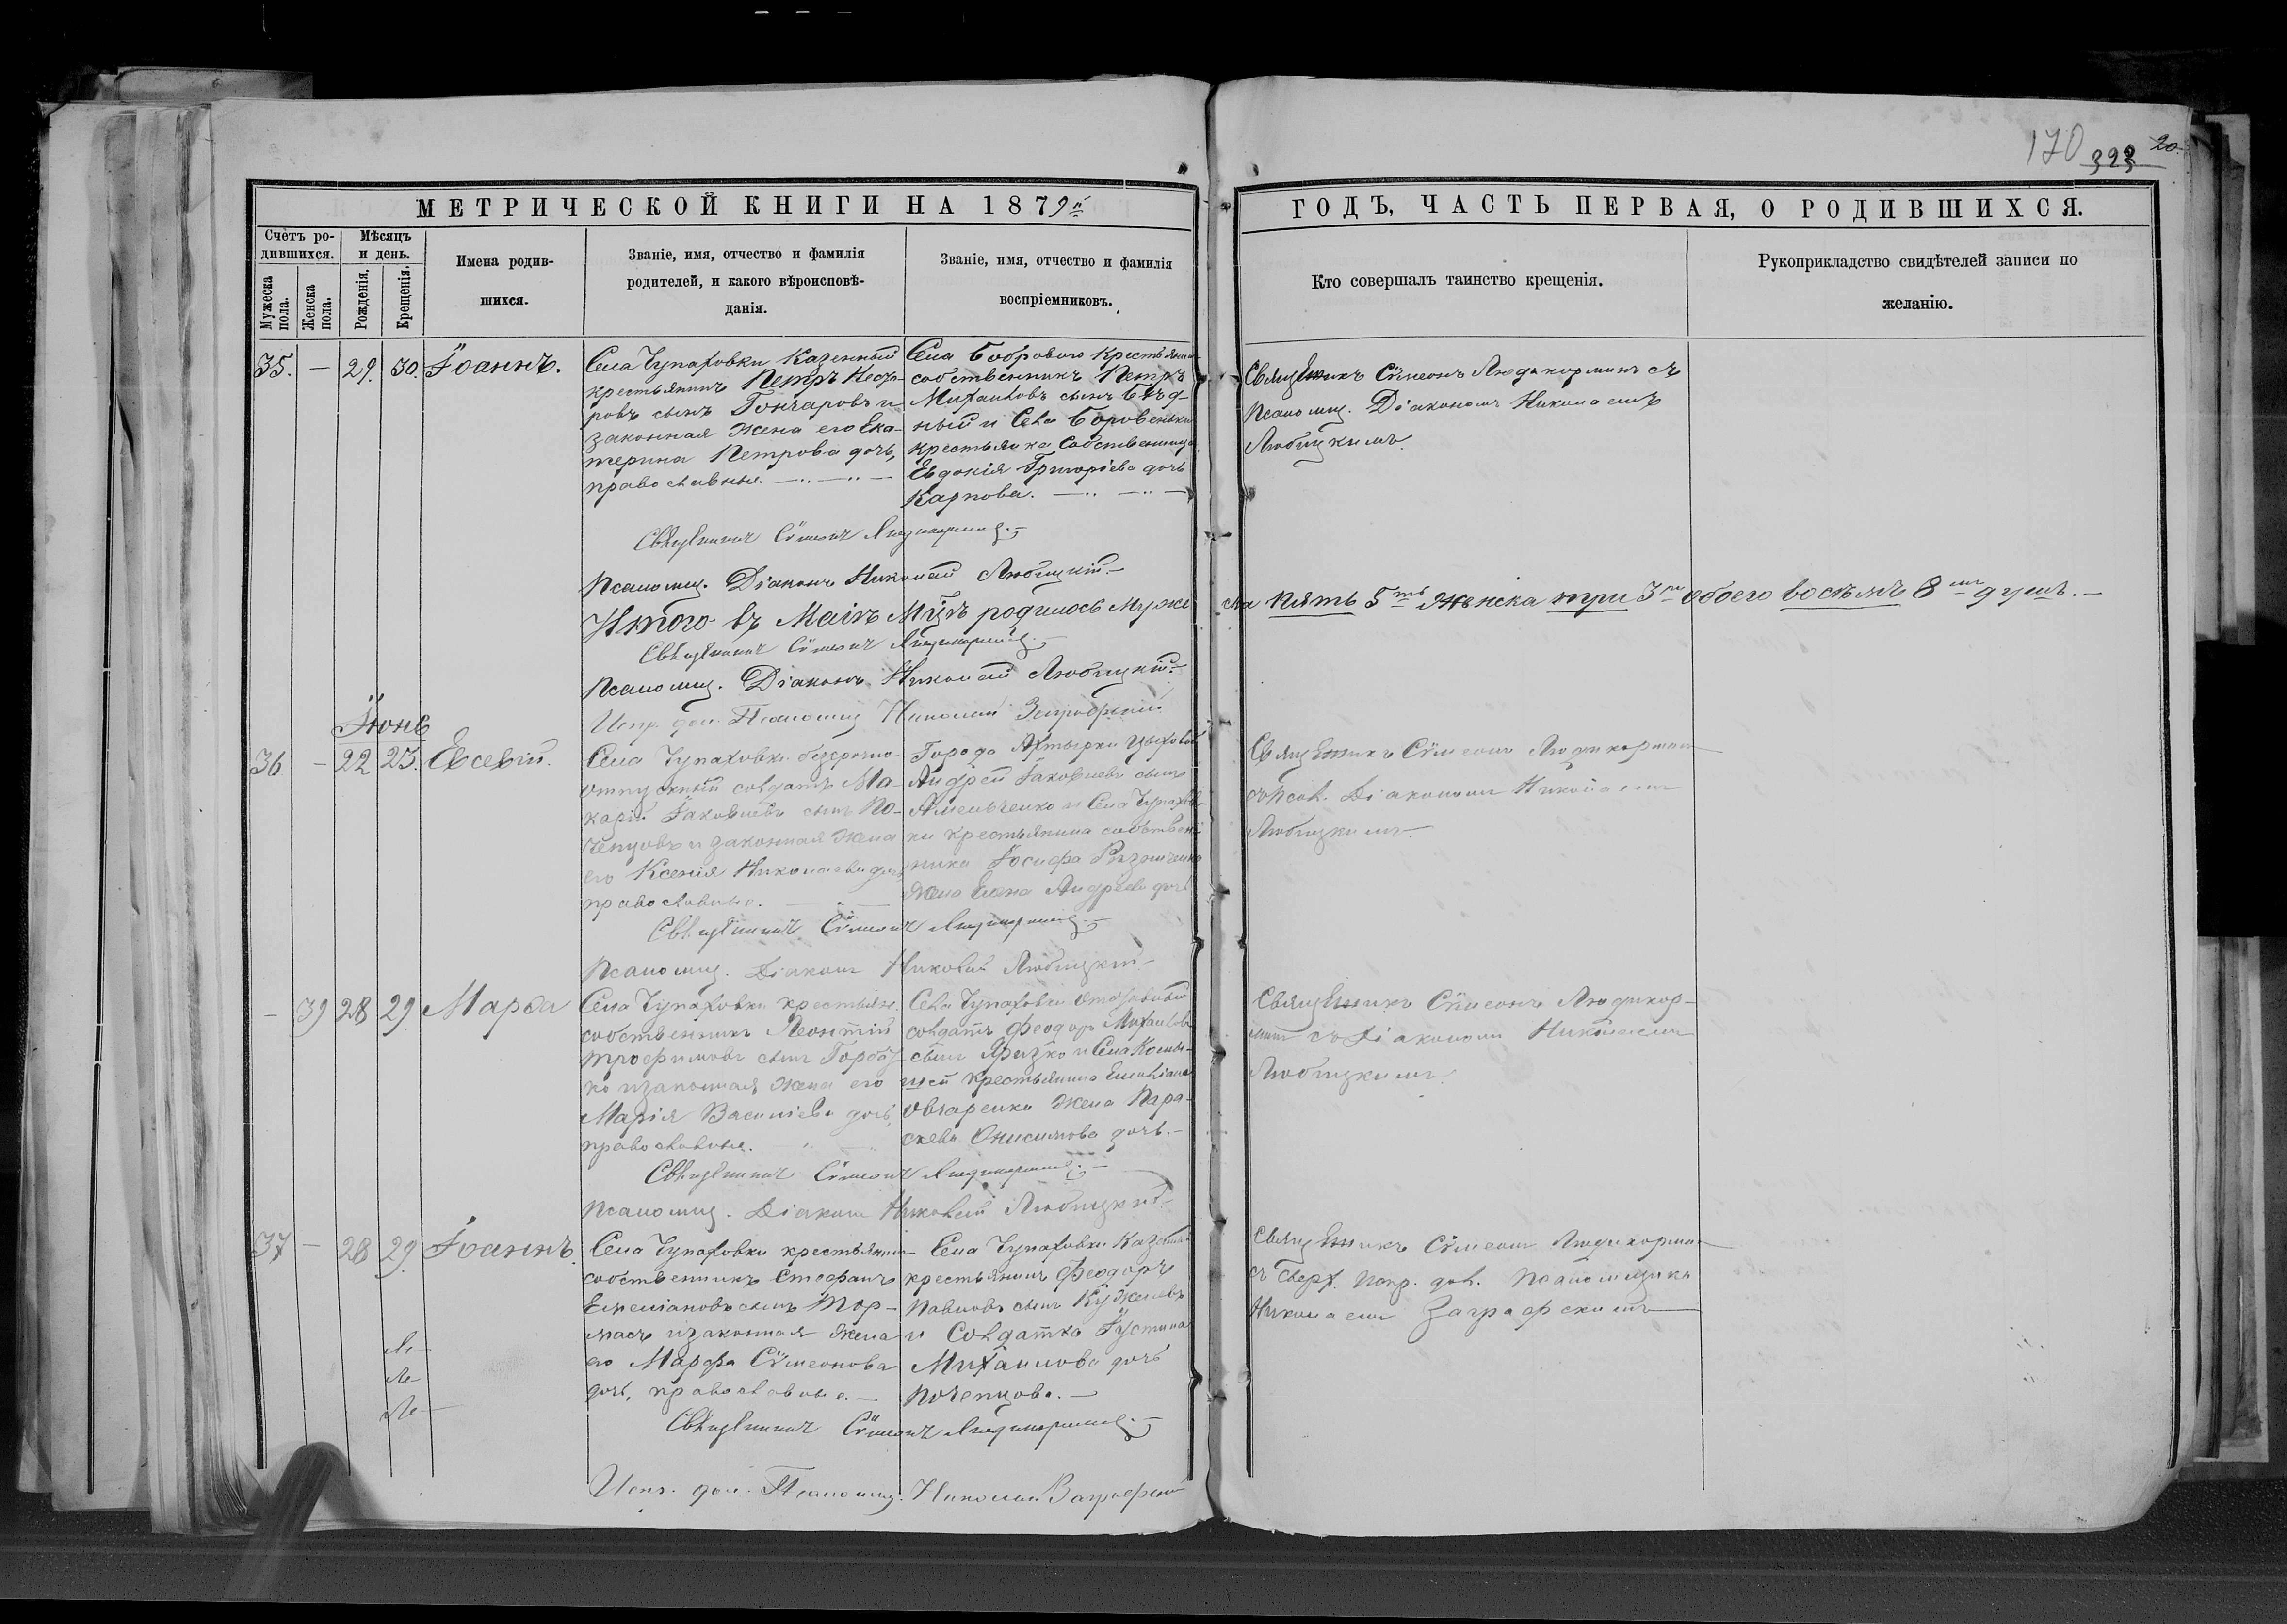 170 393 20.
МЕТРИЧЕСКОЙ КНИГИ НА 1879й
ГОДЪ, ЧАСТЬ ПЕРВАЯ, О РОДИВШИХСЯ.
Счетъ ро-
дившихся.
Мужеска пола.
Женска пола.
Мѣсяцъ
и день.
Рожденія.
Крещенія.
Имена родив-
шихся.
Званіе, имя, отчество и фамилія
родителей, и какого вѣроисповѣ-
данія.
Званіе, имя, отчество и фамилія
воспріемниковъ.
Кто совершалъ таинство крещенія.
Рукоприкладство свидѣтелей записи по
желанію.
35. — 29. 30. Іоаннъ.
Села Чупаховки Казенный
крестьянинъ Петръ
ровъ сынъ Гончаровъ и
законная жена его Ека-
терина Петрова дочь,
православные.
Села Боброваго Крестьянинъ
собственникъ Петръ
Михаиловъ сынъ Бѣд-
ный и Села Боровеньки
крестьянка собственница
Евдокія Григоріева дочь
Карпова.
Священникъ Сѵмеонъ Людикорминъ съ
Псаломщ. Діакономъ Николаемъ
Любицкимъ.
Священникъ Сѵмеонъ
Псаломщ. Діаконъ Николай Любицкій.
Итого въ Маіѣ Мцѣ родилось Муже
ска пять 5ть Женска три 3ри обоего восемь 8мь душъ.
Священникъ Сѵмеонъ
Псаломщ. Діаконъ Николай Любицкій.
Испр. дол. Псаломщ. Николай Заграфскій
Іюнь
36 — 22 23. Евсевій.
Села Чупаховки безсрочно-
отпускный солдатъ Ма-
карій Іаковлевъ сынъ По-
чепцовъ и законная жена
его Ксенія Николаева дочь,
православные.
Города Ахтырки Цыховой
Андрей Іаковлевъ сынъ
Амельченко и Села Чупахов-
ки крестьянина собствен-
ника Іосифа
жена Елена Андреева дочь
Священникъ Сѵмеонъ Людикорминъ
съ псал. Діакономъ Николаемъ
Любицкимъ.
Священникъ Сѵмеонъ
Псаломщ. Діаконъ Николай Любицкій
— 39 28 29. Марѳа
Села Чупаховки крестьян.
собственникъ Леонтій
Трофимовъ сынъ
ко и законная жена его
Марія Василіева дочь,
православные.
Села Чупаховки отставный
солдатъ Феодоръ Михаиловъ
сынъ Яризко и Села
крестьянина Емиліана
Овчаренка жена Пара-
скева Онисимова дочь.
Священникъ Сѵмеонъ Людикор-
минъ съ Діакономъ Николаемъ
Любицкимъ.
Священникъ Сѵмеонъ
Псаломщ. Діаконъ Николай Любицкій
37 — 28 29. Іоаннъ.
Села Чупаховки крестьянинъ
собственникъ Стефанъ
Емеліановъ сынъ
и законная жена
его Марфа Сѵмеонова
дочь, православные.
Села Чупаховки Казенный
крестьянинъ Феодоръ
Павловъ сынъ
и Солдатка Іустина
Михаилова дочь
Почепцова.
Священникъ Сѵмеонъ Людикорминъ
съ сверх. испр. дол. Псаломщика
Николаемъ Заграфскимъ
Священникъ Сѵмеонъ
Испр. дол. Псаломщ. Николай Заграфскій